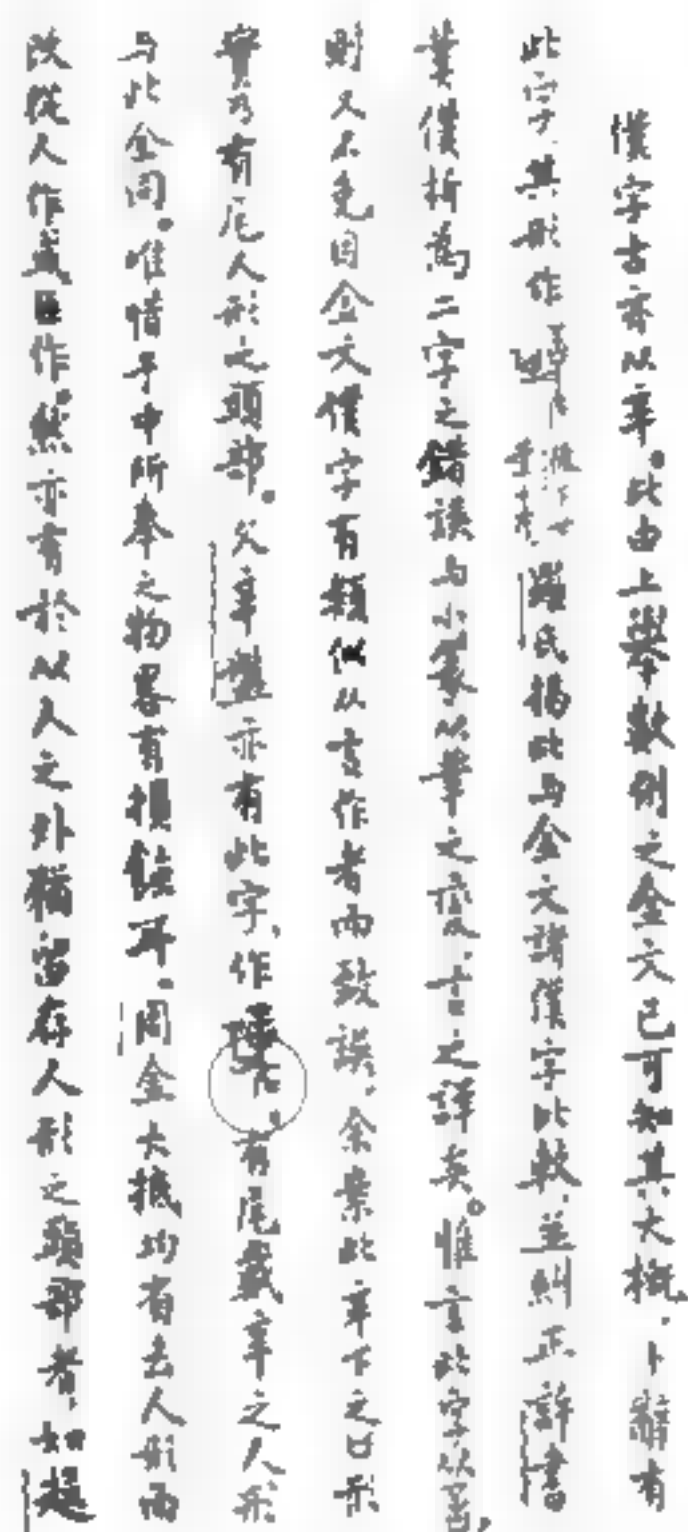 僕字古亦从辛。此由上舉數例之金文已可知其大概，卜辭有
此字，其形作 羅氏揭此与金文諸僕字比較，並糾正許書
菐僕析為二字之錯誤与小篆从菐之變，言之詳矣。惟言此字从言，
則又不免因金文僕字有類似从言作者而致誤，余案此辛下之口形
實乃有尾人形之頭部。父辛盤亦有此字，作 有尾戴辛之人形
与此全同。惟惜手中所奉之物畧有損餘耳。周金大抵均有去人形而
改从人作或臣作，然亦有於从人之外猶留存人形之頭部者，如趞